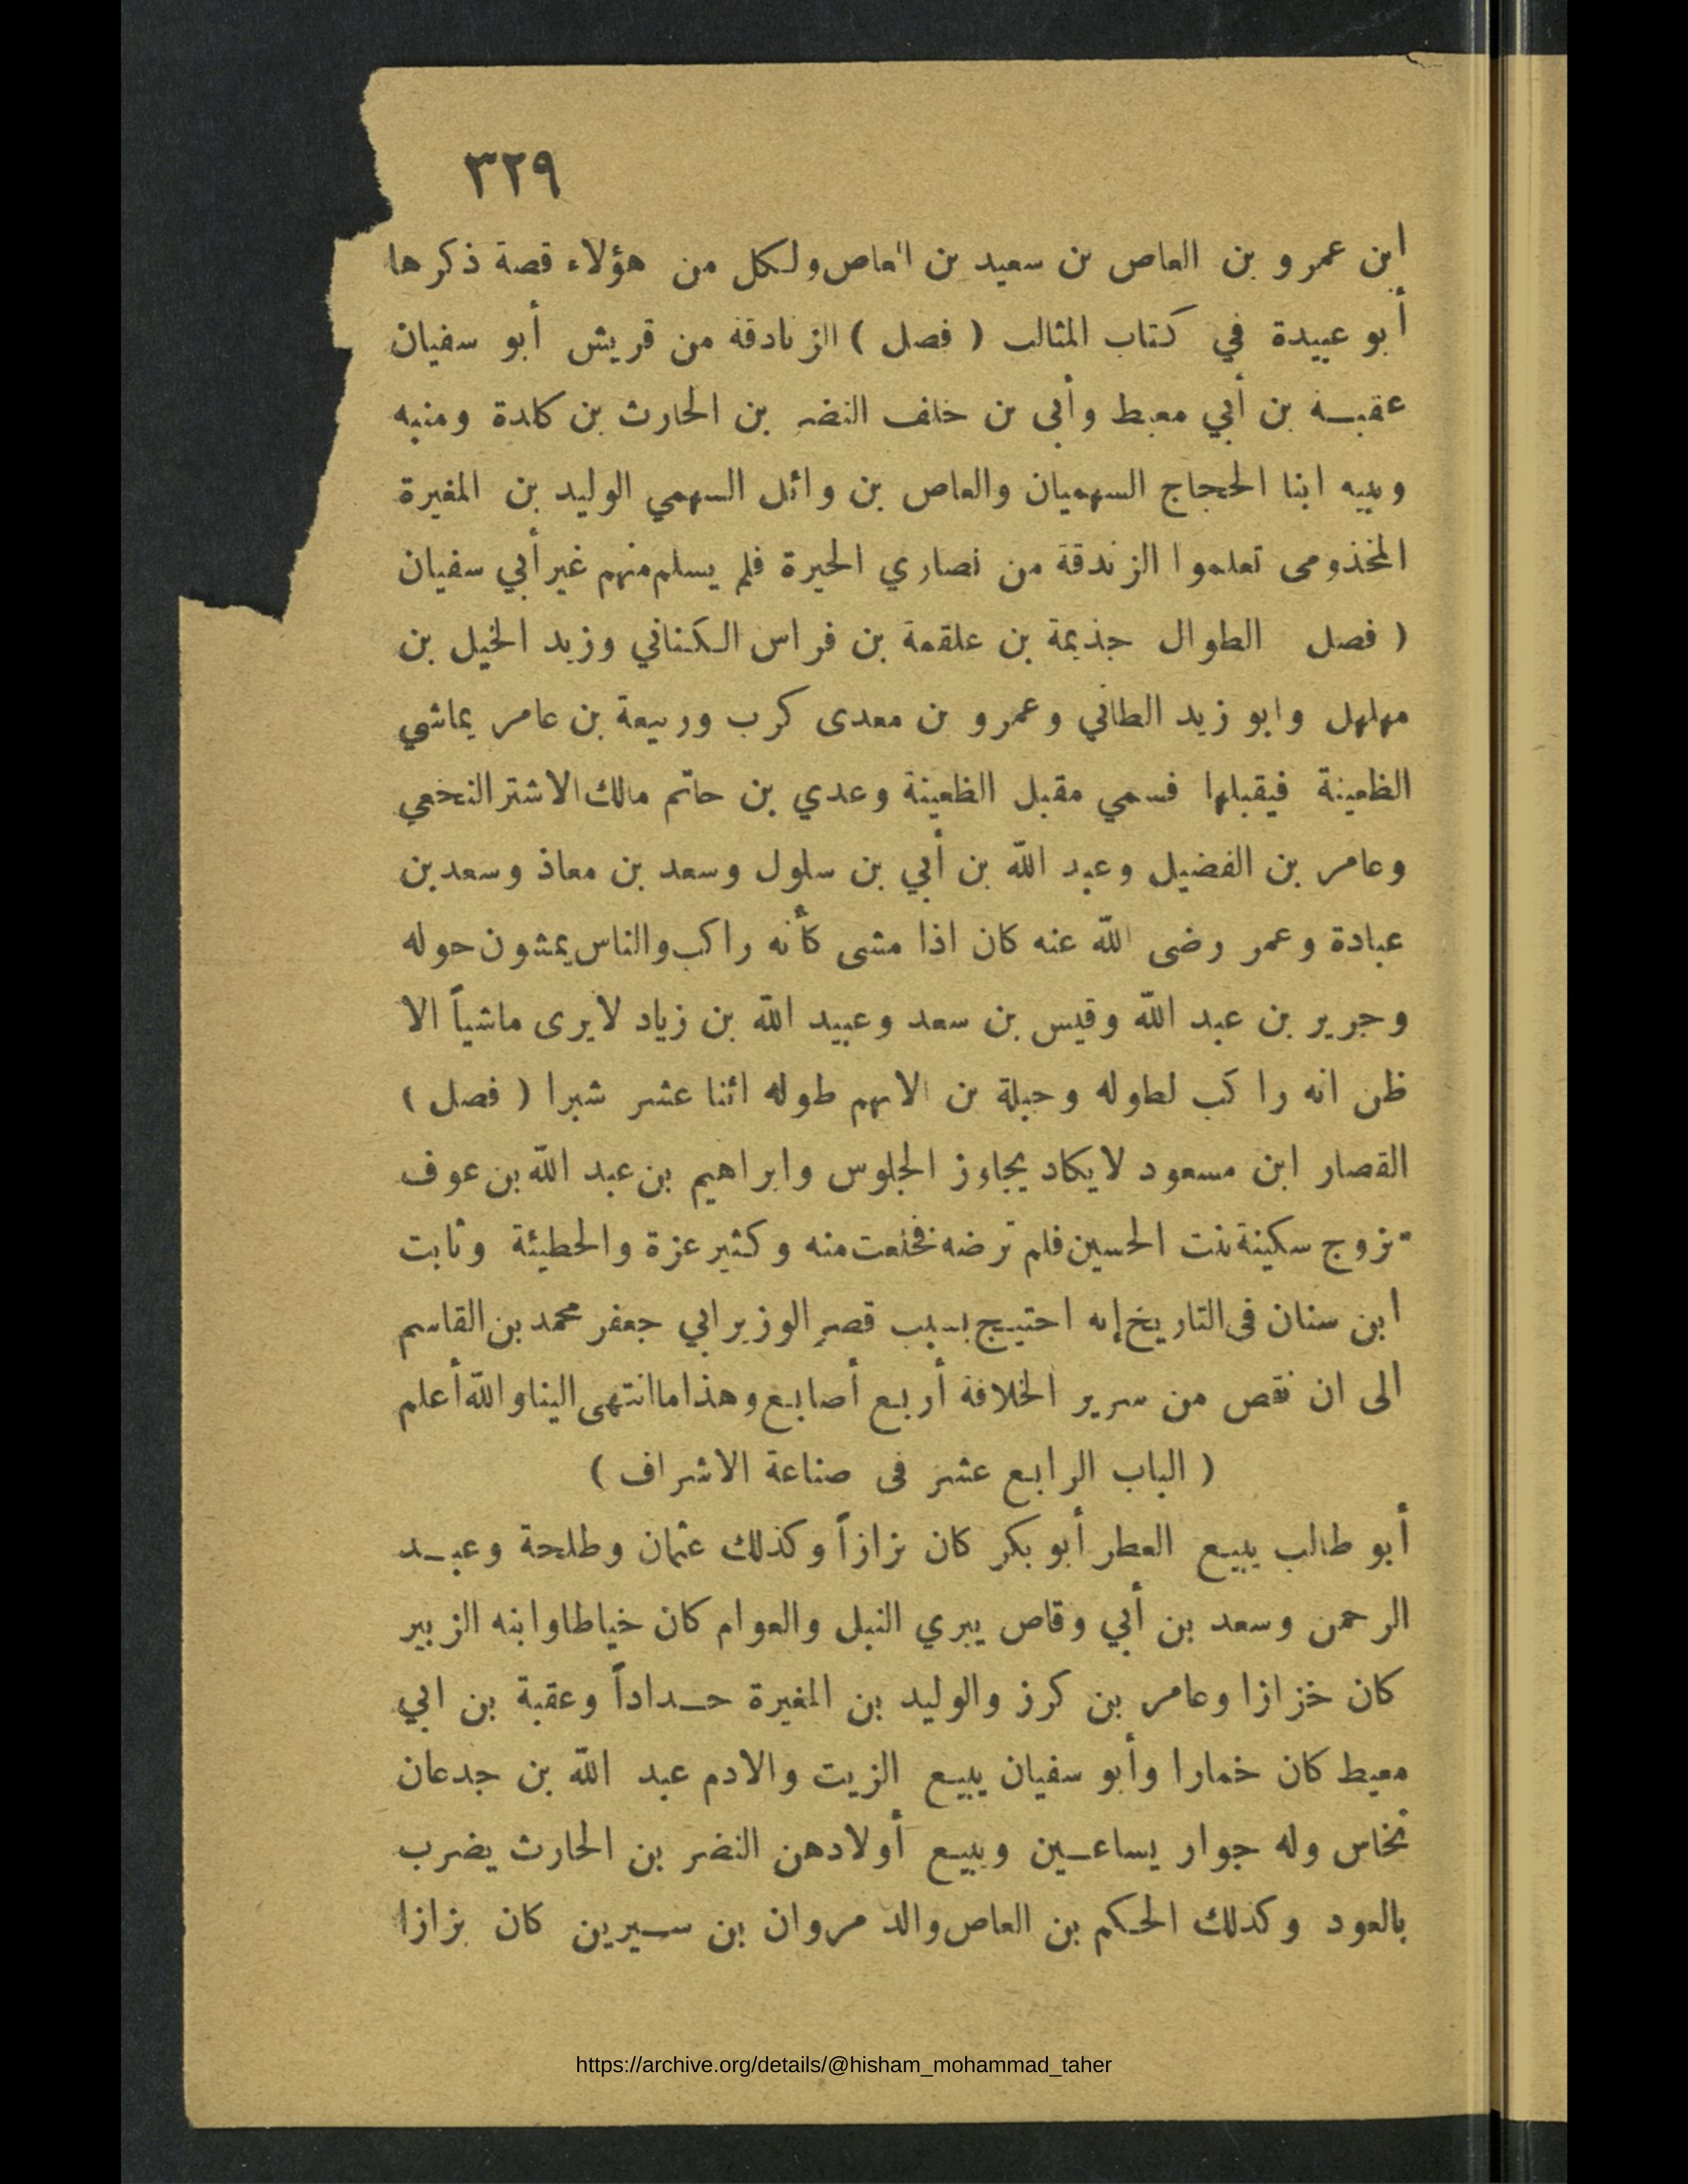 ٣٢٩
ابن عمرو بن العاص بن سعيد بن العاص ولكل من هؤلاء قصة ذكرها
أبو عبيدة في كتاب المثالب ( فصل ) الزنادقة من قريش أبو سفيان
عقبة بن أبي معيط وأبى بن خلف النضر بن الحارث بن كلدة ومنبه
ونبيه ابنا الحجاج السهميان والعاص بن وائل السهمي الوليد بن المغيرة
المخذومى تعلموا الزندقة من نصاري الحيرة فلم يسلم منهم غير أبي سفيان
( فصل الطوال جذيمة بن علقمة بن فراس الكناني وزيد الخيل بن
مهلهل وابو زيد الطائي وعمرو بن معدى كرب وربيعة بن عامر يماشي
الظعينة فيقبلها فسمي مقبل الظعينة وعدي بن حاتم مالك الاشتر النخعي
وعامر بن الفضيل وعبد الله بن أبي بن سلول وسعد بن معاذ وسعد بن
عبادة وعمر رضى الله عنه كان اذا مشى كأنه راكب والناس يمشون حوله
وجرير بن عبد الله وقيس بن سعد وعبيد الله بن زياد لا يرى ماشياً الا
ظن انه راكب لطوله وجبلة بن الايهم طوله اثنا عشر شبرا ( فصل )
القصار ابن مسعود لا يكاد يجاوز الجلوس وابراهيم بن عبد الله بن عوف
تزوج سكينة بنت الحسين فلم ترضه فخلعت منه وكثير عزة والحطيئة وثابت
ابن سنان فى التاريخ إنه احتيج بسبب قصر الوزير ابي جعفر محمد بن القاسم
الى ان نقص من سرير الخلافة أربع أصابع وهذا ما انتهى الينا والله أعلم
( الباب الرابع عشر فى صناعة الاشراف )
أبو طالب يبيع العطر أبو بكر كان بزازاً وكذلك عثمان وطلحة وعبد
الرحمن وسعد بن أبي وقاص يبري النبل والعوام كان خياطا وابنه الزبير
كان خزازا وعامر بن كرز والوليد بن المغيرة حداداً وعقبة بن ابي
معيط كان خمارا وأبو سفيان يبيع الزيت والادم عبد الله بن جدعان
نخاس وله جوار يساعين ويبيع أولادهن النضر بن الحارث يضرب
بالعود وكذلك الحكم بن العاص والد مروان بن سيرين كان بزازا
https://archive.org/details/@hisham_mohammad_taher